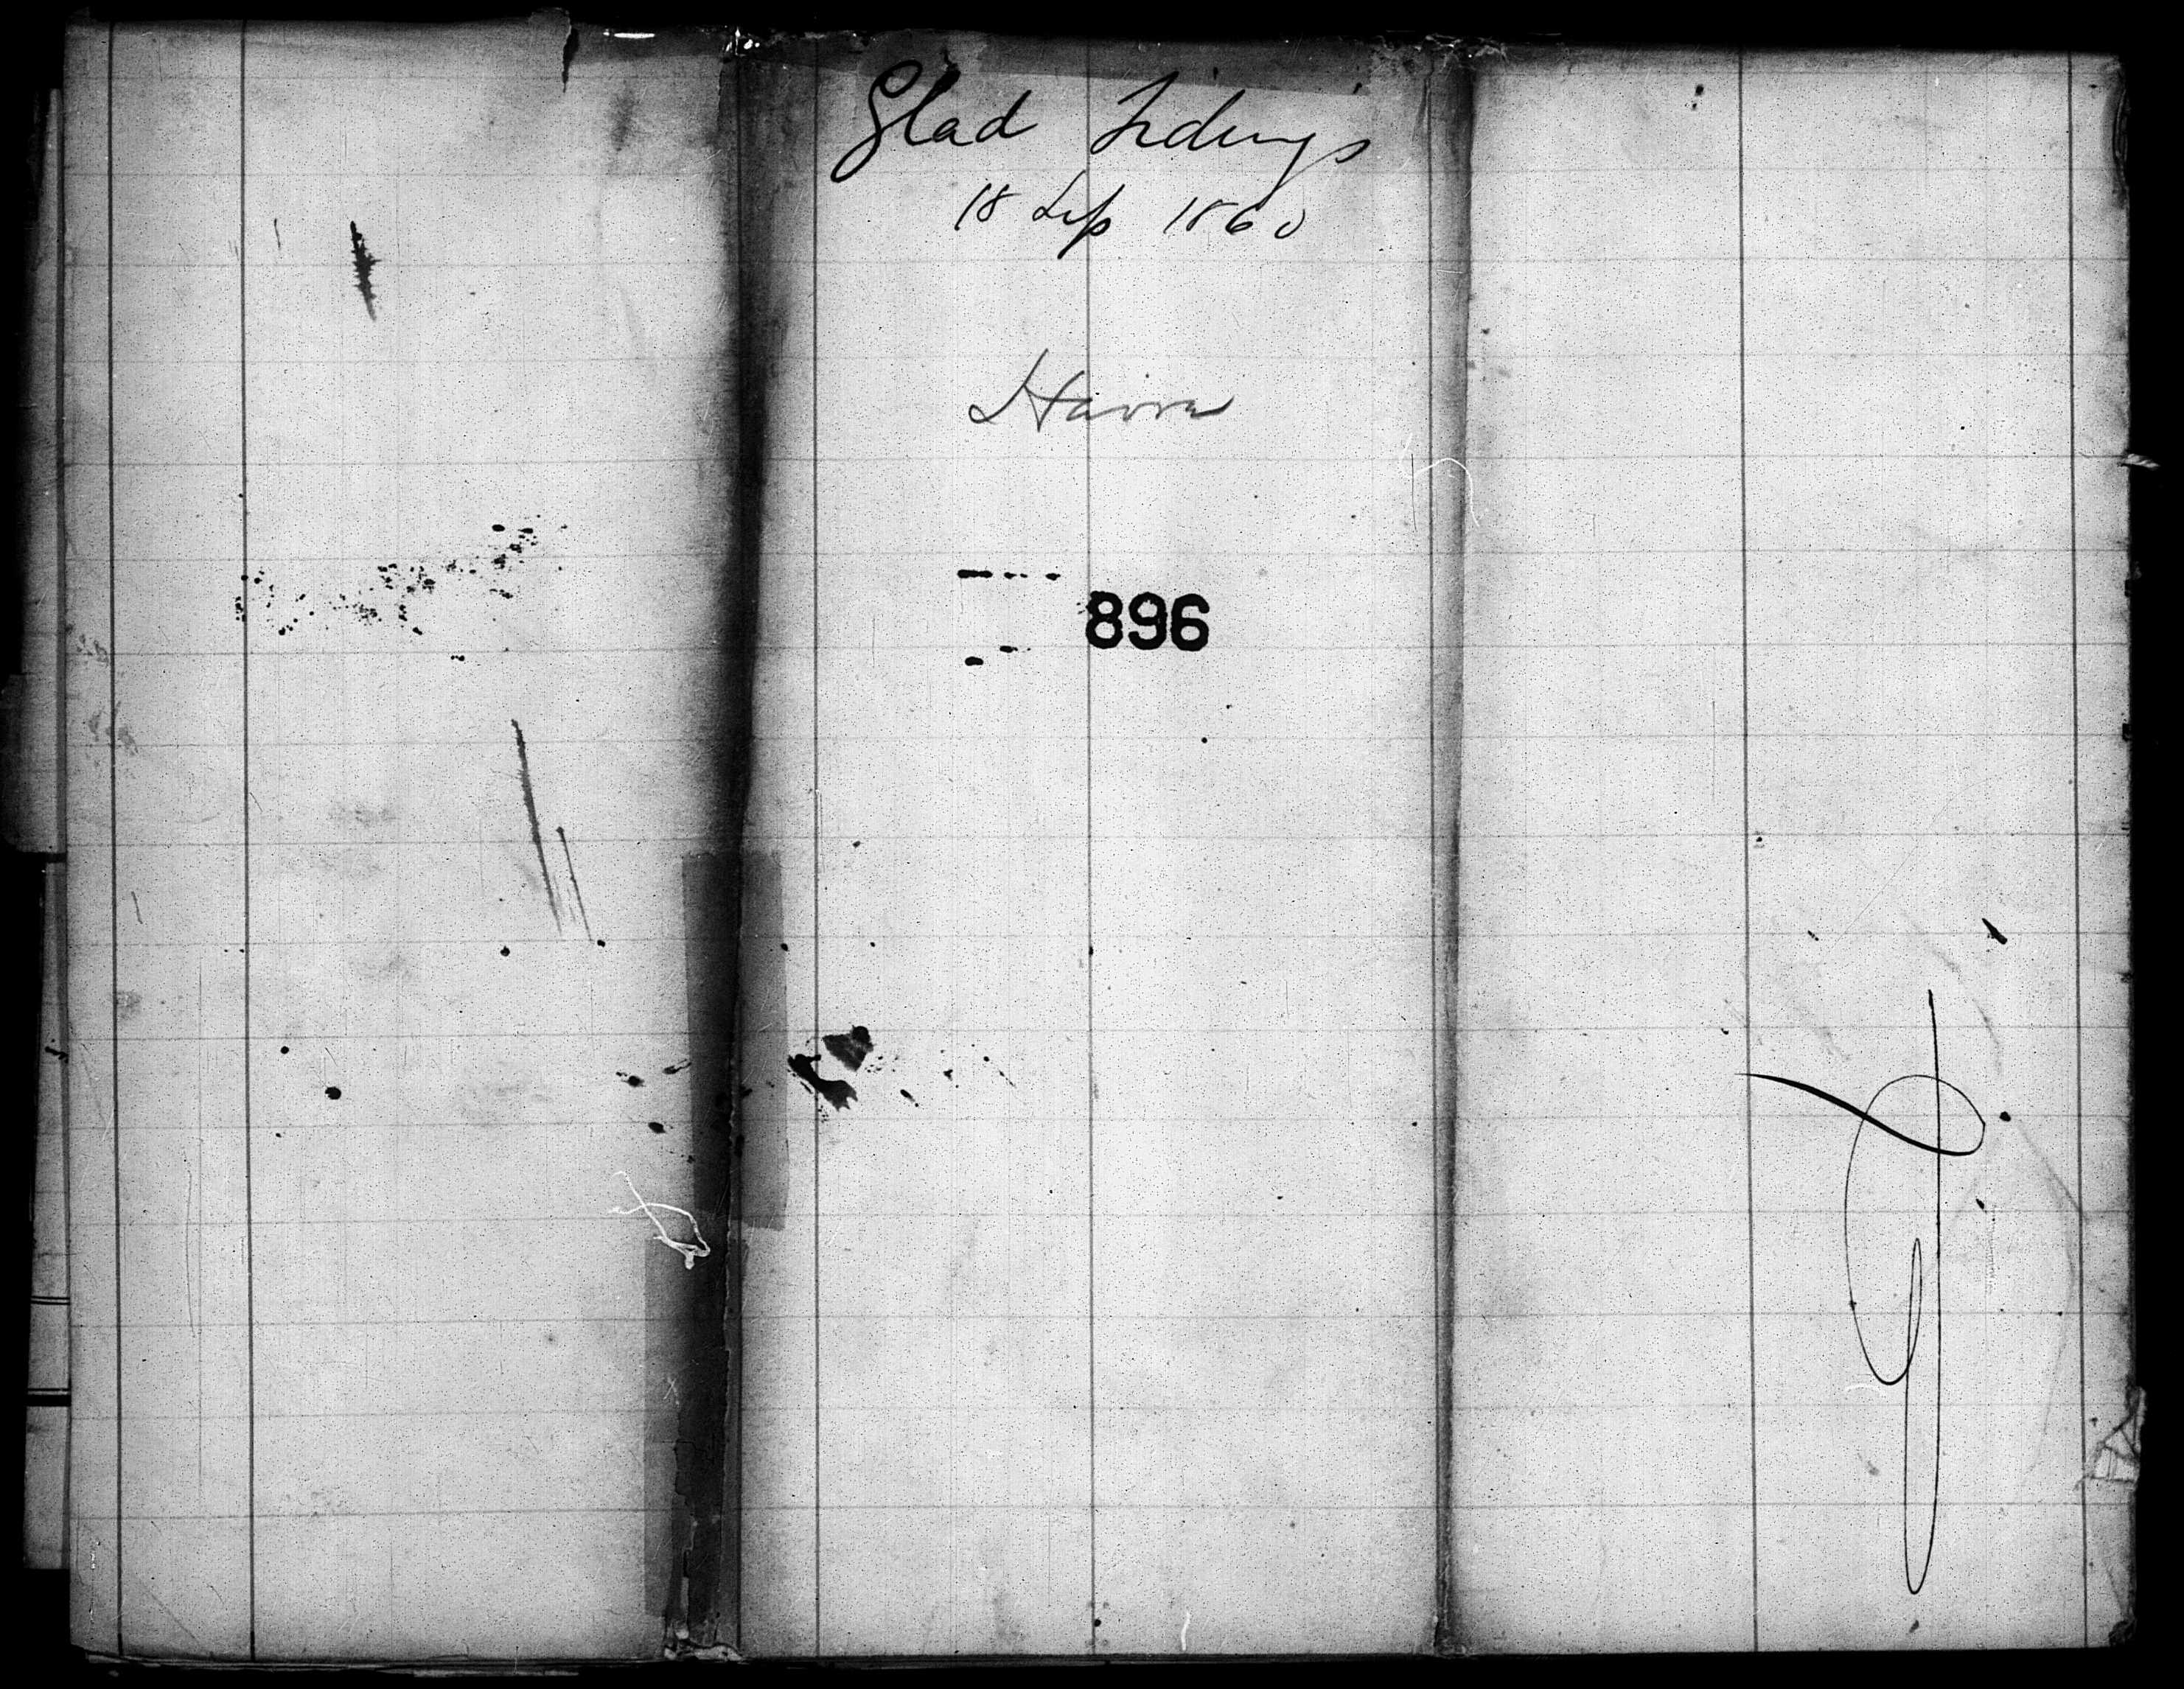 Glad Tidings
18 Sep 1860
Havre
896